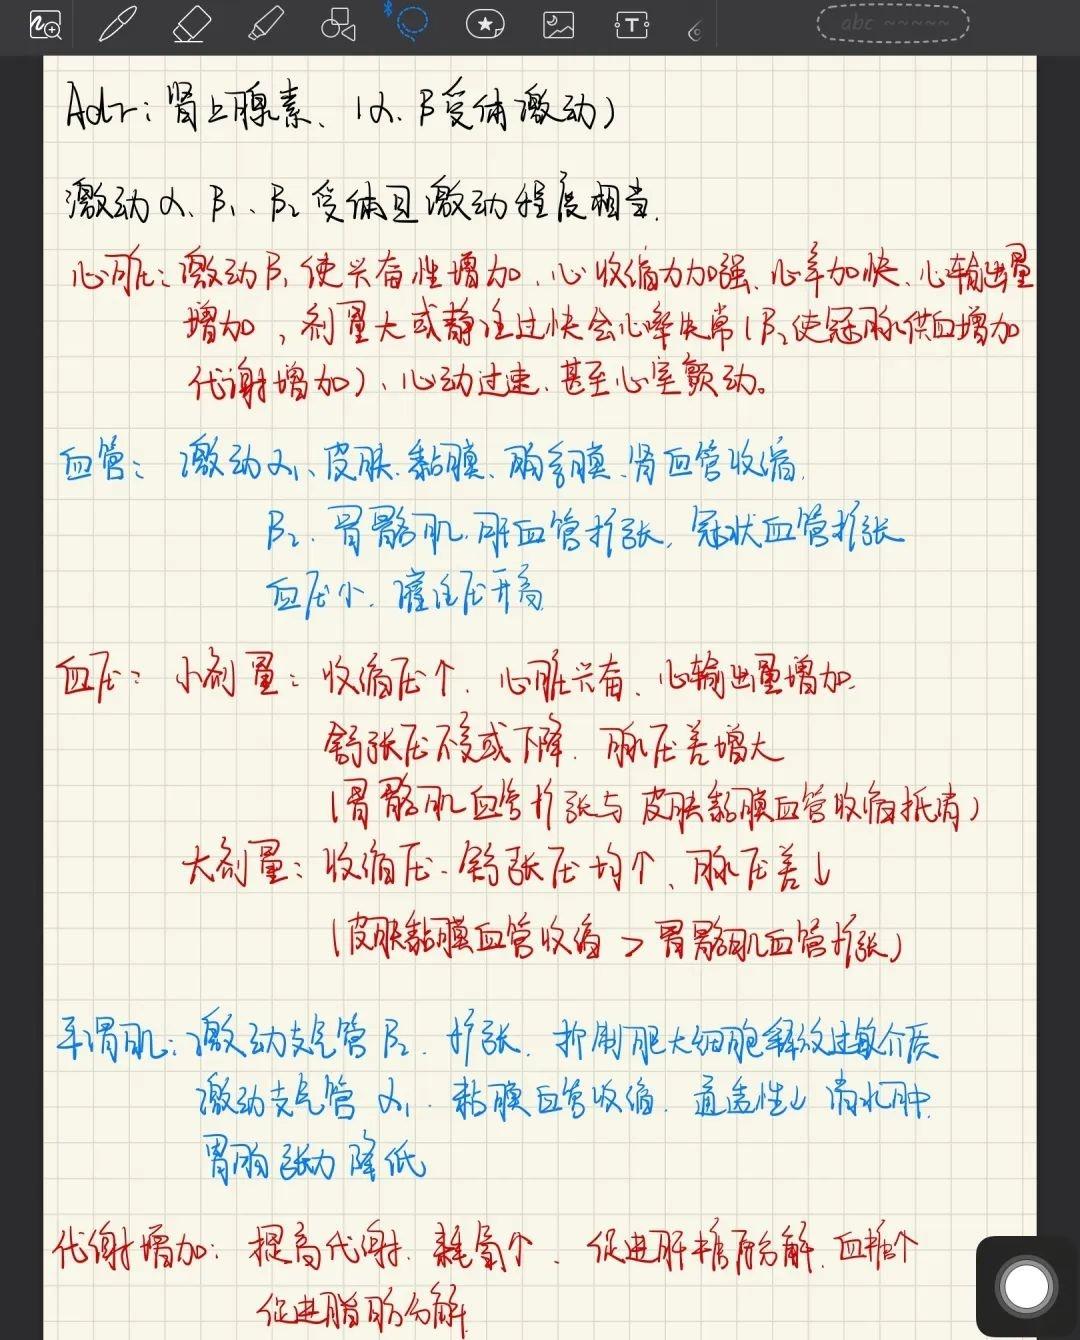 abc ~~~~~
T
Adr：肾上腺素、（α、β受体激动）
激动α、β₁、β₂受体且激动程度相当.
心脏：激动β₁使兴奋性增加、心收缩力加强、心率加快、心输出量
增加，剂量大或静注过快会心率失常（β₂使冠脉供血增加
代谢增加）、心动过速、甚至心室颤动。
血管：激动α₁、皮肤、黏膜、肠系膜、肾血管收缩.
β₂、骨骼肌、肝血管扩张，冠状血管扩张
血压小、灌注压升高
血压：小剂量：收缩压↑、心脏兴奋、心输出量增加.
舒张压不变或下降、脉压差增大
（骨骼肌血管扩张与皮肤黏膜血管收缩抵消）
大剂量：收缩压、舒张压均↑、脉压差↓
（皮肤黏膜血管收缩 > 骨骼肌血管扩张）
平滑肌：激动支气管β₂、扩张、抑制肥大细胞释放过敏介质
激动支气管α₁、粘膜血管收缩、通透性↓消水肿.
胃肠张力降低
代谢增加：提高代谢、耗氧↑、促进肝糖原分解、血糖↑
促进脂肪分解